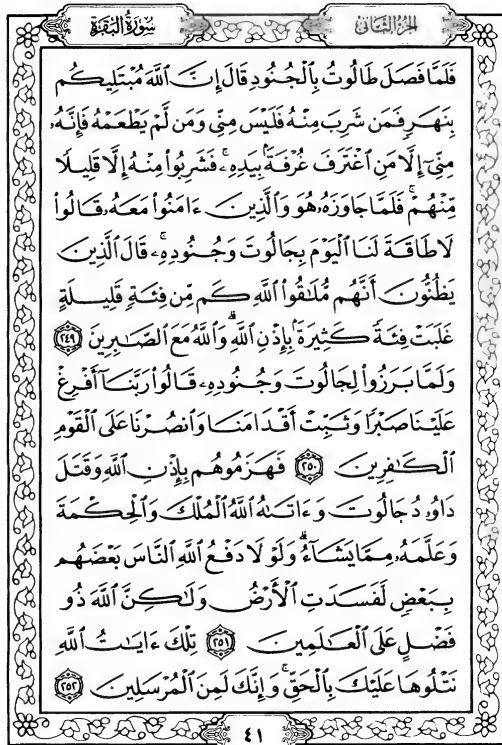 سُورَةُ الْبَقَرَةِ
الجُزْءُ الثَّانِي
فَلَمَّا فَصَلَ طَالُوتُ بِالْجُنُودِ قَالَ إِنَّ ٱللَّهَ مُبْتَلِيكُم
بِنَهَرٍ فَمَن شَرِبَ مِنْهُ فَلَيْسَ مِنِّى وَمَن لَّمْ يَطْعَمْهُ فَإِنَّهُۥ
مِنِّىٓ إِلَّا مَنِ ٱغْتَرَفَ غُرْفَةَۢ بِيَدِهِۦۚ فَشَرِبُوا۟ مِنْهُ إِلَّا قَلِيلًا
مِّنْهُمْۚ فَلَمَّا جَاوَزَهُۥ هُوَ وَٱلَّذِينَ ءَامَنُوا۟ مَعَهُۥ قَالُوا۟
لَا طَاقَةَ لَنَا ٱلْيَوْمَ بِجَالُوتَ وَجُنُودِهِۦۚ قَالَ ٱلَّذِينَ
يَظُنُّونَ أَنَّهُم مُّلَٰقُوا۟ ٱللَّهِ كَم مِّن فِئَةٍ قَلِيلَةٍ
غَلَبَتْ فِئَةً كَثِيرَةَۢ بِإِذْنِ ٱللَّهِۗ وَٱللَّهُ مَعَ ٱلصَّٰبِرِينَ ٢٤٩
وَلَمَّا بَرَزُوا۟ لِجَالُوتَ وَجُنُودِهِۦ قَالُوا۟ رَبَّنَآ أَفْرِغْ
عَلَيْنَا صَبْرًا وَثَبِّتْ أَقْدَامَنَا وَٱنصُرْنَا عَلَى ٱلْقَوْمِ
ٱلْكَٰفِرِينَ ٢٥٠ فَهَزَمُوهُم بِإِذْنِ ٱللَّهِ وَقَتَلَ
دَاوُۥدُ جَالُوتَ وَءَاتَىٰهُ ٱللَّهُ ٱلْمُلْكَ وَٱلْحِكْمَةَ
وَعَلَّمَهُۥ مِمَّا يَشَآءُۗ وَلَوْلَا دَفْعُ ٱللَّهِ ٱلنَّاسَ بَعْضَهُم
بِبَعْضٍ لَّفَسَدَتِ ٱلْأَرْضُ وَلَٰكِنَّ ٱللَّهَ ذُو
فَضْلٍ عَلَى ٱلْعَٰلَمِينَ ٢٥١ تِلْكَ ءَايَٰتُ ٱللَّهِ
نَتْلُوهَا عَلَيْكَ بِٱلْحَقِّۚ وَإِنَّكَ لَمِنَ ٱلْمُرْسَلِينَ ٢٥٢
٤١